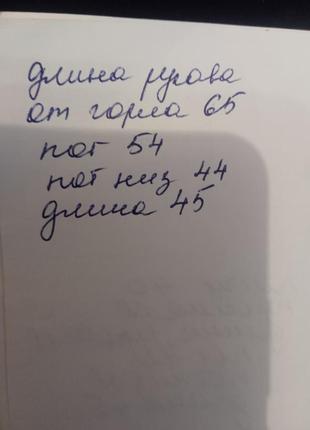 длина рукава
от горла 65
пог 54
пог низ 44
длина 45